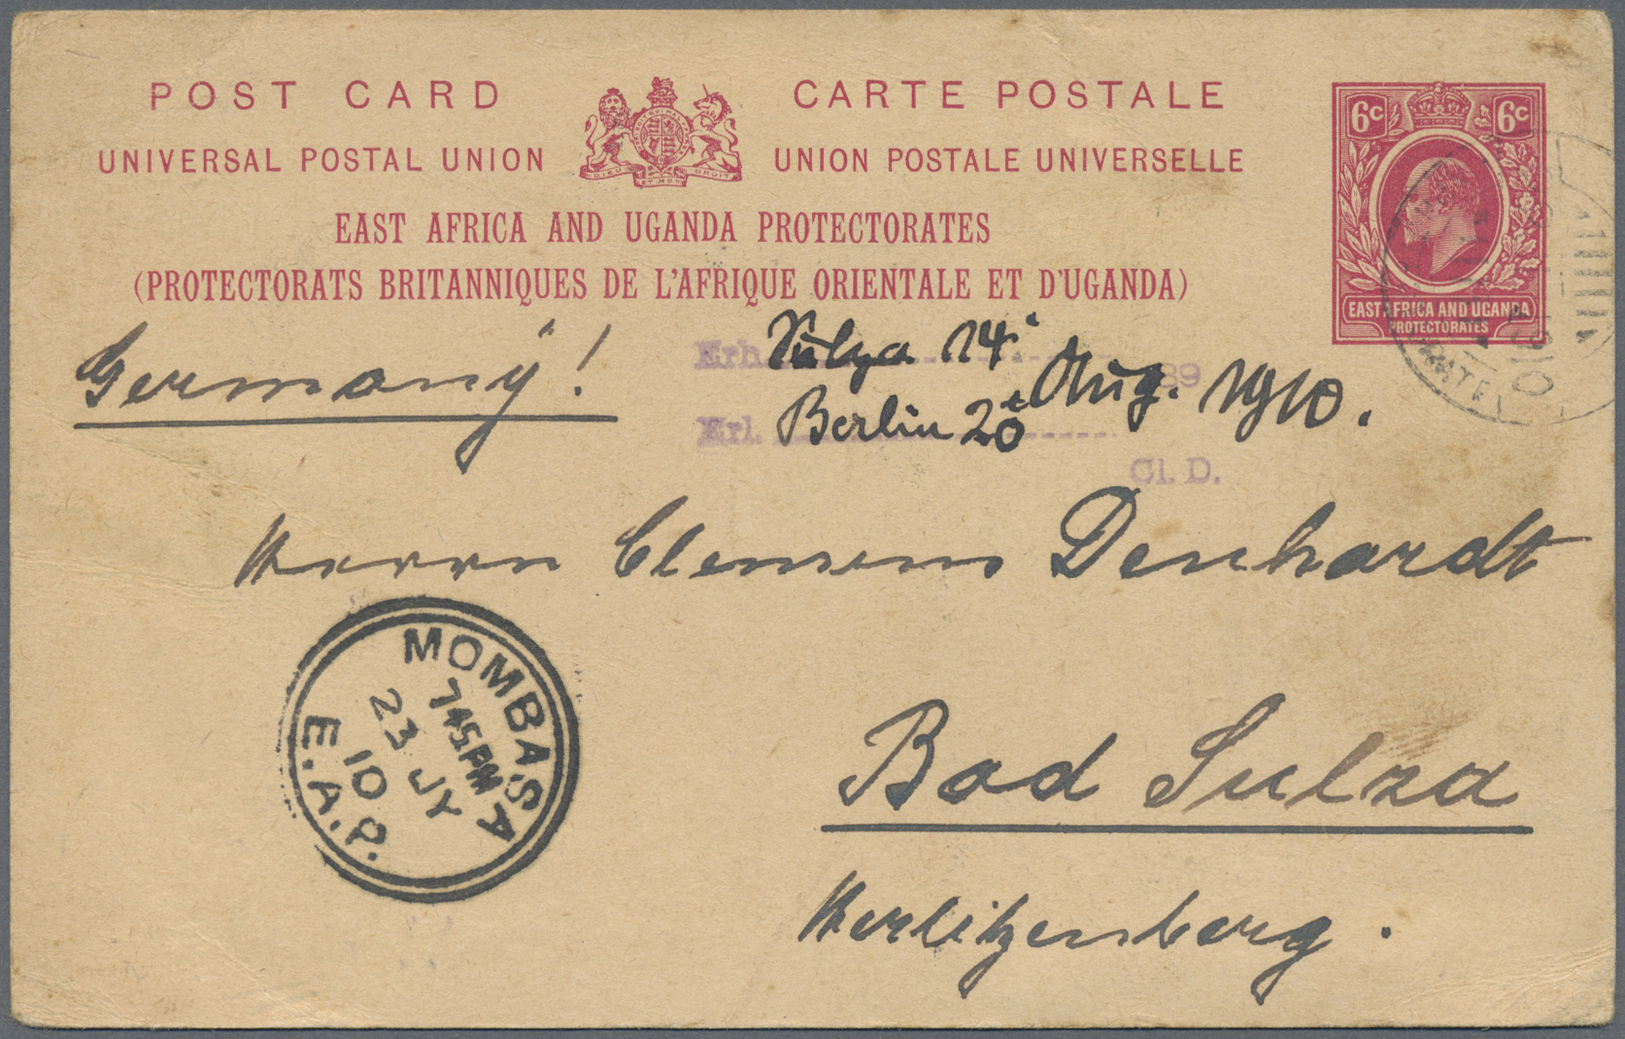 POST CARD CARTE POSTALE
UNIVERSAL POSTAL UNION UNION POSTALE UNIVERSELLE
DIEU ET MON DROIT
6c 6c
EAST AFRICA AND UGANDA PROTECTORATES
EAST AFRICA AND UGANDA PROTECTORATES
(PROTECTORATS BRITANNIQUES DE L'AFRIQUE ORIENTALE ET D'UGANDA)
Germany!
Erh. Sulza 14. Aug. 1910.
Erl. Berlin 20t
Cl. D.
Herrn Clemens Denhardt
MOMBASA
745PM
23 JY
10
E.A.P.
Bad Sulza
Herlitzenberg.